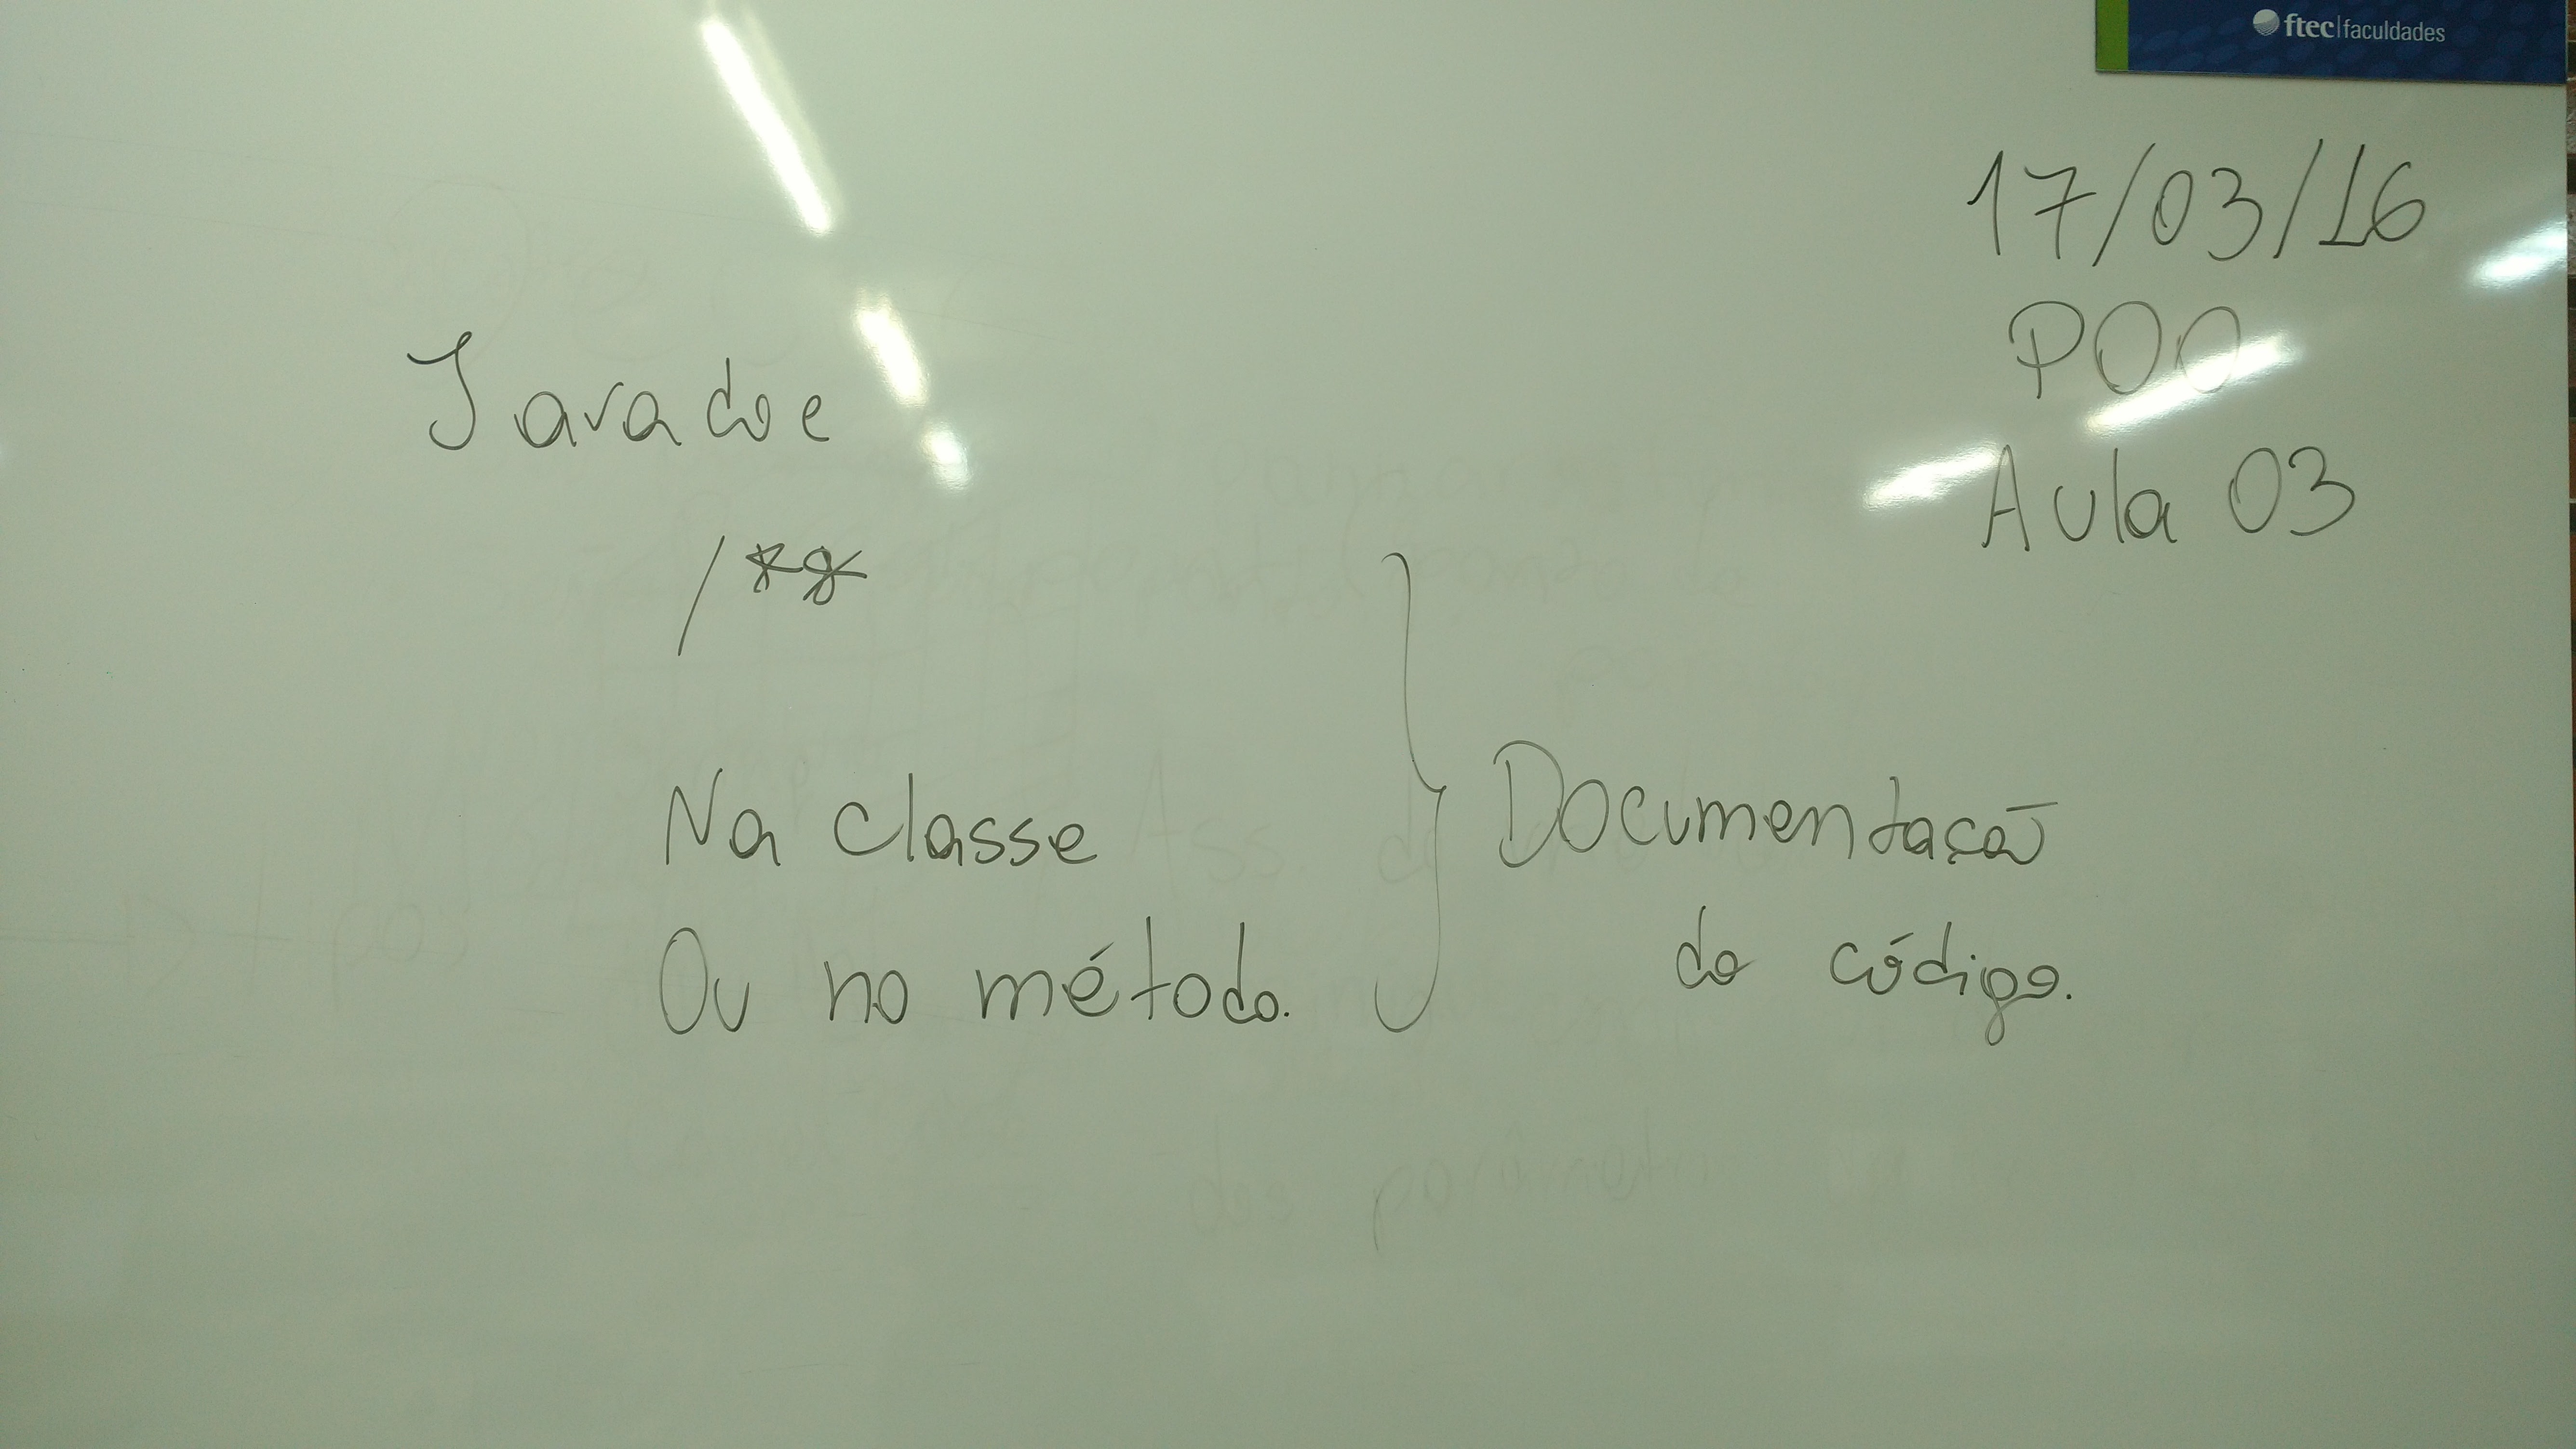 ftec|faculdades
17/03/16
POO
Aula 03
Javadoc
/**
Na classe
Ou no método.
Documentação
do código.